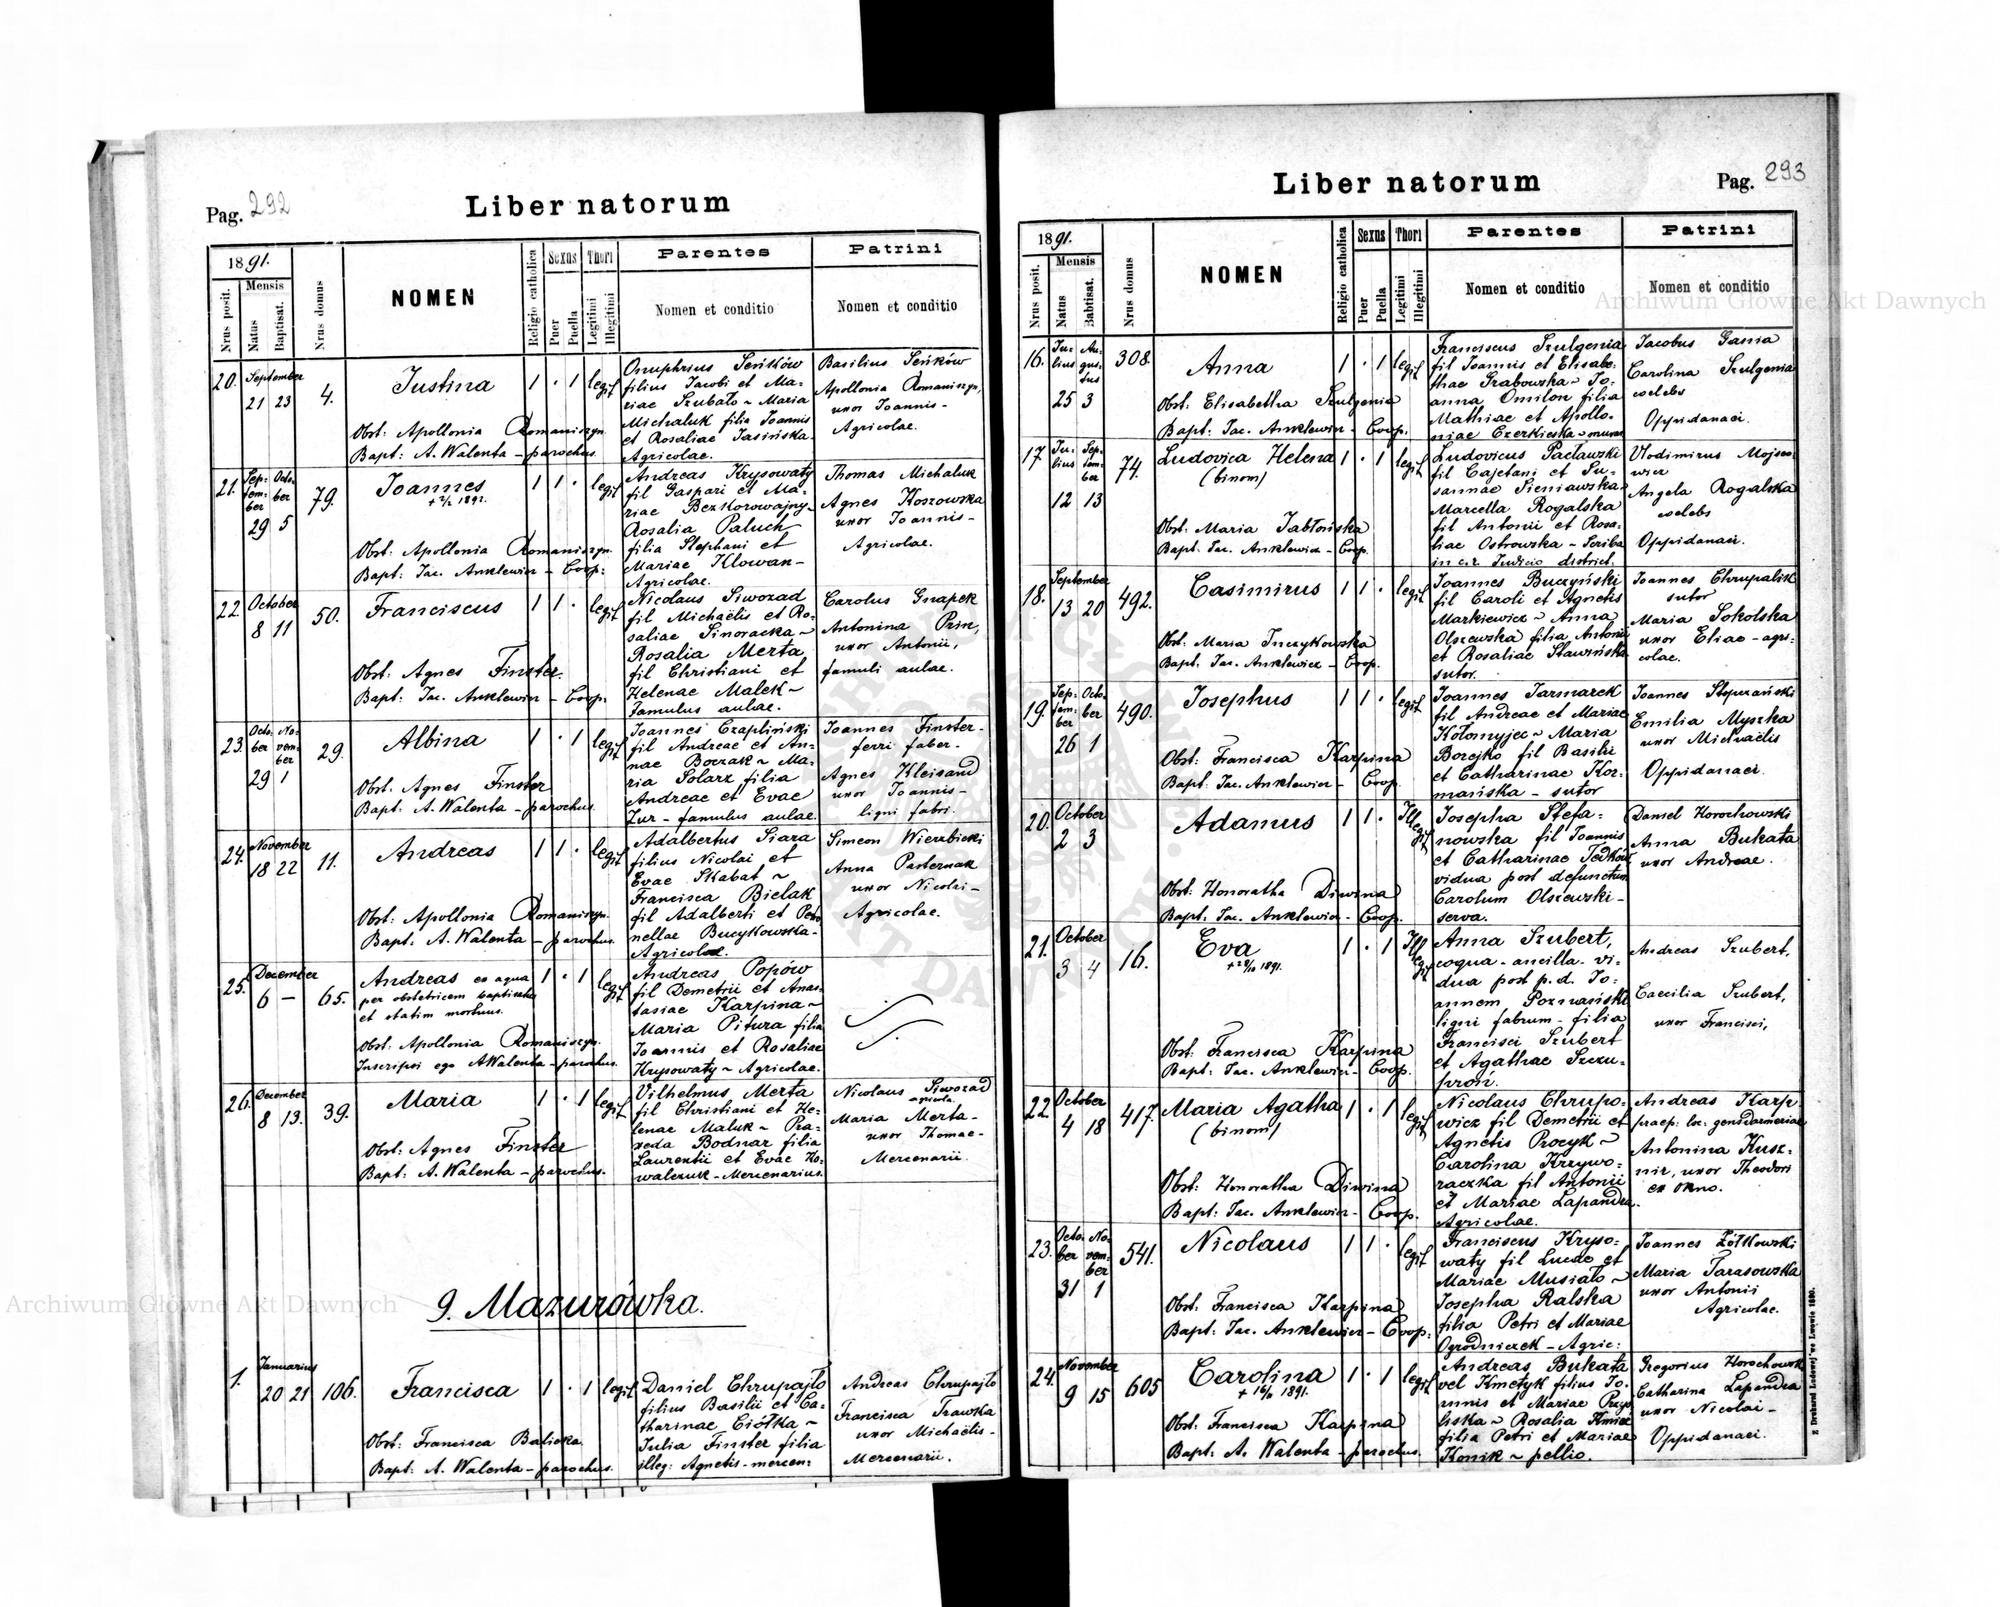 Pag. 292
Liber natorum
1891.
Mensis
Nrus posit.
Natus
Baptisat.
Nrus domus
NOMEN
Religio catholica
Sexus
Puer
Puella
Thori
Legitimi
Illegitimi
Parentes
Nomen et conditio
Patrini
Nomen et conditio
20.
September
21 23
4.
Justina
1 . 1 legit
Obst: Apollonia Romaniszyn.
Bapt: A. Walenta - parochus.
Onuphrius Seńków
filius Jacobi et Ma-
riae Szubało ~ Maria
Michaluk filia Joannis
et Rosaliae Jasińska.
Agricolae.
Basilius Seńków
Apollonia Romaniszyn,
uxor Joannis -
Agricolae.
21.
Sep- Octo-
tem- ber
ber
29 5
79.
Joannes
+ 2/2 1892.
1 1 . legit
Obst: Apollonia Romaniszyn.
Bapt: Jac. Anklewicz - Coop:
Andreas Krysowaty
fil Gaspari et Ma-
riae Bezkorowajny-
Rosalia Paluch
filia Stephani et
Mariae Klowan -
Agricolae.
Thomas Michaluk
Agnes Koszowska
uxor Joannis -
Agricolae.
22.
October
8 11
50.
Franciscus
1 1 . legit
Obst: Agnes Finster.
Bapt: Jac. Anklewicz - Coop:
Nicolaus Siwozad
fil Michaëlis et Ro-
saliae Sinoracka ~
Rosalia Merta
fil Christiani et
Helenae Malek ~
Famulus aulae.
Carolus Gnapek
Antonina Prin,
uxor Antonii,
famuli aulae.
23.
Octo- No-
ber vem-
ber
29 1
29.
Albina
1 . 1 legit
Obst. Agnes Finster
Bapt: A. Walenta - parochus.
Joannes Czapliński
fil Andreae et An-
nae Boczak ~ Ma-
ria Solarz filia
Andreae et Evae
Zur - famulus aulae.
Joannes Finster -
ferri faber -
Agnes Kleisand
uxor Joannis -
ligni fabri.
24.
November
18 22
11.
Andreas
1 1 . legit
Obst: Apollonia Romaniszyn.
Bapt: A. Walenta - parochus.
Adalbertus Siara
filius Nicolai et
Evae Skabat ~
Francisca Bielak
fil Adalberti et Petro
nellae Bucykowska -
Agricolae.
Simeon Wierzbicki
Anna Pasternak
uxor Nicolai -
Agricolae.
25.
December
6 -
65.
Andreas ex aqua
per obstetricem baptisatus
et statim mortuus.
1 . 1 legit
Obst: Apollonia Romaniszyn.
Inscripsi ego A Walenta - parochus.
Andreas Popów
fil Demetrii et Anas-
tasiae Karpina ~
Maria Pitura filia
Joannis et Rosaliae
Krysowaty ~ Agricolae.
26.
December
8 13.
39.
Maria
1 . 1 legit
Obst: Agnes Finster
Bapt: A. Walenta - parochus.
Vilhelmus Merta
fil Christiani et He-
lenae Maluk ~ Pra-
xeda Bodnar filia
Laurentii et Evae Ko-
walczuk - Mercenarius.
Nicolaus Siwozad
- agricola.
Maria Merta -
uxor Thomae -
Mercenarii.
9. Mazurówka.
1.
Januarius
20 21
106.
Francisca
1 . 1 legit
Obst: Francisca Balicka
Bapt: A. Walenta - parochus.
Daniel Chrupajło
filius Basilii et Ca-
tharinae Ciołka ~
Julia Finster filia
illeg: Agnetis - mercen:
Andreas Chrupajło
Francisca Trawka
uxor Michaëlis -
Mercenarii.
Liber natorum
Pag. 293
1891.
Mensis
Nrus posit.
Natus
Babtisat.
Nrus domus
NOMEN
Religio catholica
Sexus
Puer
Puella
Thori
Legitimi
Illegitimi
Parentes
Nomen et conditio
Patrini
Nomen et conditio
16.
Ju- Au-
lius gus-
tus
25 3
308.
Anna
1 . 1 legit
Obst: Elisabetha Szulgenia
Bapt: Jac. Anklewicz - Coop.
Franciscus Szulgenia
fil Joannis et Elisabe-
thae Grabowska ~ Jo-
anna Omilon filia
Mathiae et Apollo-
niae Czerkieska - murar
Jacobus Gania
Carolina Szulgenia
coelebs
Oppidanaei.
17
Ju- Sep-
lius tem-
ber
12 13
74.
Ludovica Helena
(binom)
1 . 1 legit
Obst: Maria Jabłońska
Bapt: Jac. Anklewicz - Coop.
Ludovicus Pacławski
fil Cajetani et Su-
sannae Sieniawska.
Marcella Rogalska
fil Antonii et Rosa-
liae Ostrowska - Scriba
in c. r. Judicio district.
Vlodimirus Mojseo-
wicz
Angela Rogalska
coelebs
Oppidanaei.
18.
September
13 20
492.
Casimirus
1 1 . legit
Obst: Maria Juczykowska
Bapt: Jac. Anklewicz - Coop.
Joannes Buczyński
fil Caroli et Agnetis
Markiewicz ~ Anna
Olszewska filia Antonii
et Rosaliae Stawińska
sutor.
Joannes Chrupalik
sutor
Maria Sokolska
uxor Eliae - agri-
colae.
19.
Sep- Octo-
tem- ber
ber
26 1
490.
Josephus
1 1 . legit
Obst: Francisca Karpina
Bapt: Jac. Anklewicz - Coop.
Joannes Jarmarek
fil Andreae et Mariae
Kołomyjec ~ Maria
Borejko fil Basilii
et Catharinae Kor-
mańska - sutor
Joannes Stepczański
Emilia Myszka
uxor Michaëlis
Oppidanaei.
20.
October
2 3
Adamus
1 1 . Illegit
Obst: Honoratha Diwina
Bapt: Jac. Anklewicz - Coop.
Josepha Stefa-
nowska fil Joannis
et Catharinae Fedków
vidua post defunctum
Carolum Olszewski -
serva.
Daniel Horochowski
Anna Bukata
uxor Andreae.
21.
October
3 4
16.
Eva
+ 29/10 1891.
1 . 1 Illegit
Obst: Francisca Karpina
Bapt: Jac. Anklewicz - Coop.
Anna Szubert,
coqua - ancilla - vi-
dua post p. d. Jo-
annem Poznański
ligni fabrum - filia
Francisci Szubert
et Agathae Szczu-
proń.
Andreas Szubert,
Caecilia Szubert,
uxor Francisci,
22.
October
4 18
417.
Maria Agatha
(binom)
1 . 1 legit
Obst: Honoratha Diwina
Bapt: Jac. Anklewicz - Coop.
Nicolaus Chrupo-
wicz fil Demetrii et
Agnetis Procyk ~
Carolina Krzywo-
raczka fil Antonii
et Mariae Lapandra.
Agricolae.
Andreas Karp
praep: loc: gensdarmeriae
Antonina Kusz-
nir, uxor Theodori
ex Okno.
23.
Octo- No-
ber vem-
ber
31 1
541.
Nicolaus
1 1 . legit
Obst: Francisca Karpina
Bapt: Jac. Anklewicz - Coop.
Franciscus Kryso-
waty fil Lucae et
Mariae Musiało ~
Josepha Ralska
filia Petri et Mariae
Ogrodniczek - Agric:
Joannes Żółkowski
Maria Tarasowska
uxor Antonii
Agricolae.
24.
November
9 15
605
Carolina
+ 16/11 1891.
1 . 1 legit
Obst: Francisca Karpina
Bapt: A. Walenta - parochus.
Andreas Bukata
vel Kmetyk filius Jo-
annis et Mariae Przy-
liska ~ Rosalia Kmieć
filia Petri et Mariae
Konik ~ pellio.
Gregorius Horochowsk
Catharina Lapandra
uxor Nicolai -
Oppidanaei.
Z Drukarni Ludowej we Lwowie 1890.
Archiwum Główne Akt Dawnych
Archiwum Główne Akt Dawnych